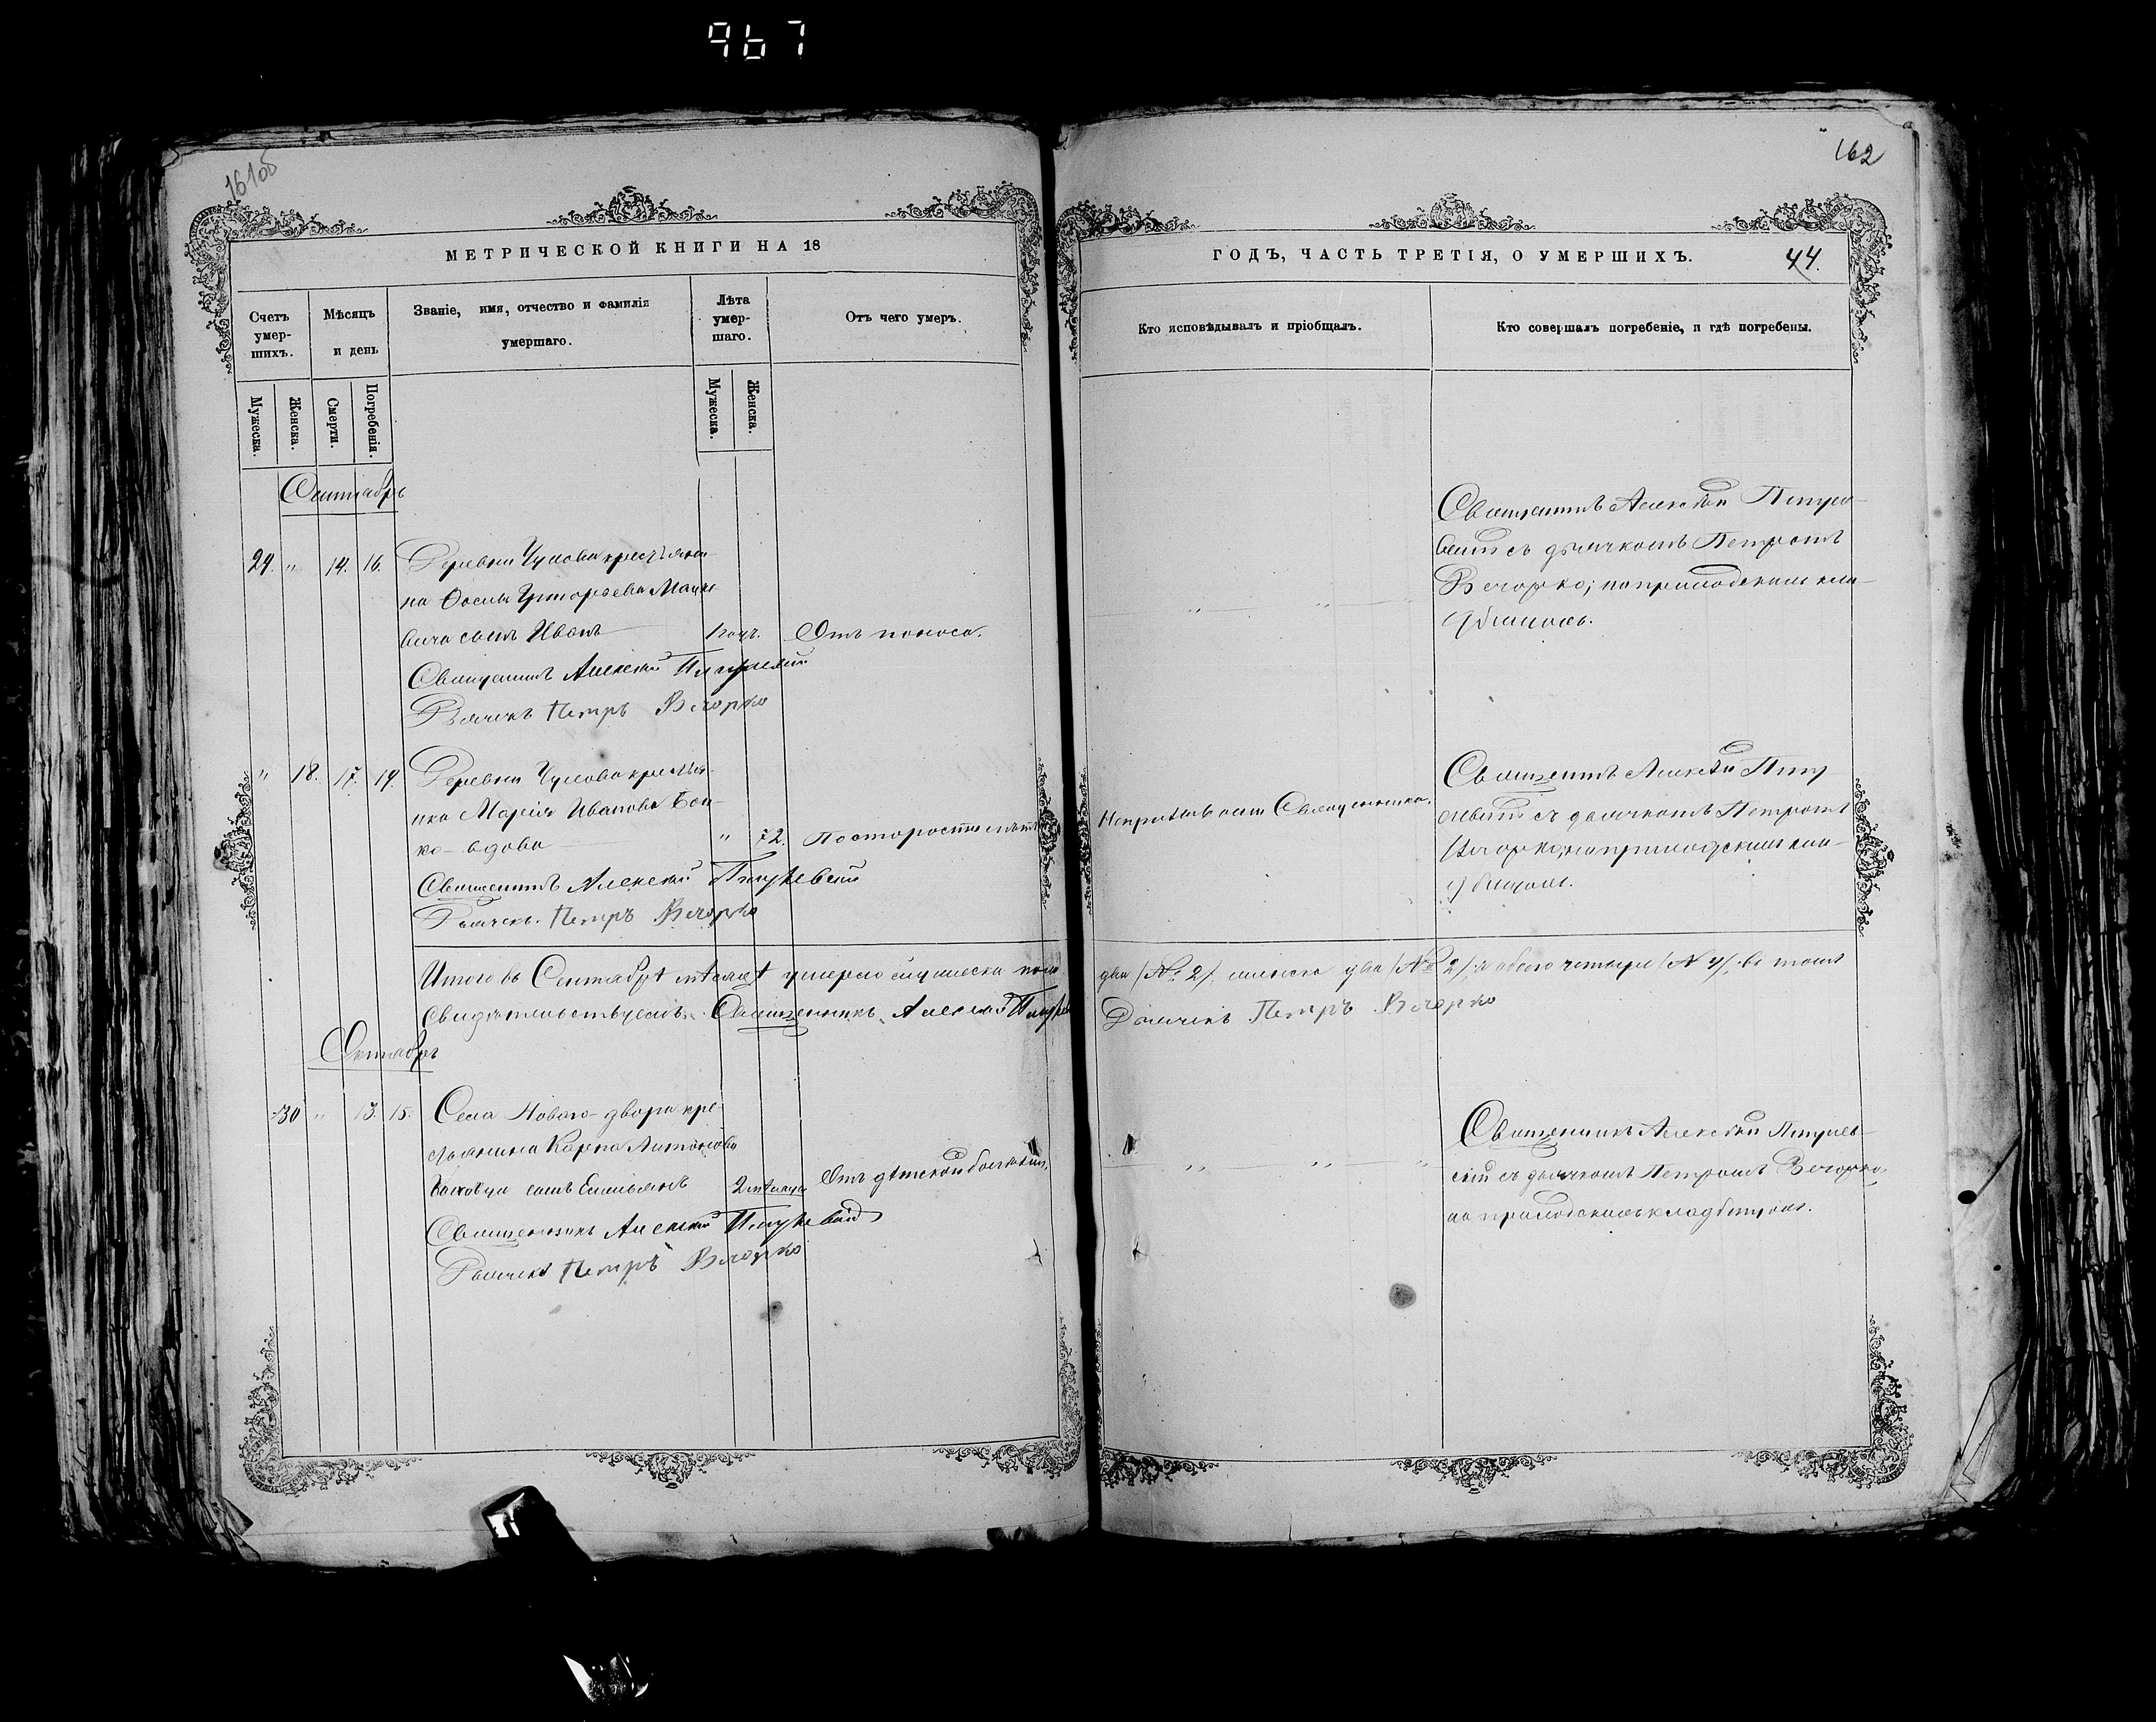 967
161об
162
МЕТРИЧЕСКОЙ КНИГИ НА 18
ГОДЪ, ЧАСТЬ ТРЕТІЯ, О УМЕРШИХЪ.
44.
Счетъ умер-
шихъ.
Мѣсяцъ
и день
Званіе, имя, отчество и фамилія
умершаго.
Лѣта
умер-
шаго.
Отъ чего умеръ.
Кто исповѣдывалъ и пріобщалъ.
Кто совершалъ погребеніе, и гдѣ погребены.
Мужеска.
Женска.
Смерти.
Погребенія.
Мужеска.
Женска.
Сентябрь
29. " 14. 16. Деревни крестьяни-
на Григорьева
вича сынъ Иванъ
Отъ поноса.
Священникъ Алексѣй
Дьячекъ Петръ Вечорко
Священникъ Алексѣй
съ дьячкомъ Петромъ
Вечорко; на приходскомъ кла-
дбищѣ.
" 18. 17. 19. Деревни крестьян-
ка Марія Иванова Бой-
ко вдова
" 72. По старости лѣтъ
Священникъ Алексѣй
Дьячекъ Петръ Вечорко
Священника.
Священникъ Алексѣй
съ дьячкомъ Петромъ
Вечорко, на приходскомъ кла-
дбищѣ.
Итого въ Сентябрѣ мѣсяцѣ умерло мужеска пола
два (№ 2), женска два (№ 2), а обоего четыре (№ 4), въ томъ
свидѣтельствуемъ. Священникъ Алексѣй
Дьячекъ Петръ Вечорко
Октябрь
30 " 13. 15. Села Нового-двора кре-
стьянина Карпа Антонова
сынъ Емельянъ
2 мѣсяца
Отъ дѣтской болѣзни.
Священникъ Алексѣй
Дьячекъ Петръ Вечорко
Священникъ Алексѣй
скій съ дьячкомъ Петромъ Вечорко,
на приходскомъ кладбищѣ.